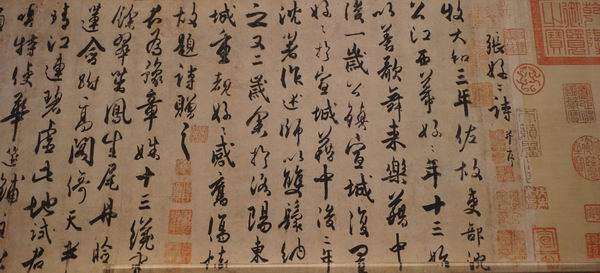 張好〻詩 并序
牧大和三年佐故吏部沈
公江西幕好〻年十三始
以善歌舞來樂籍中
後一歲公鎮宣城復置
好〻於宣城籍中後二年
沈著作述師以雙鬟納
之又二歲余於洛陽東
城重覩好〻感舊傷懷
故題詩贈之
君為豫章姝十三纔有
餘翠茁鳳生尾丹臉
蓮含跗高閣倚天半
晴江連碧虛此地試君
唱特使華筵鋪